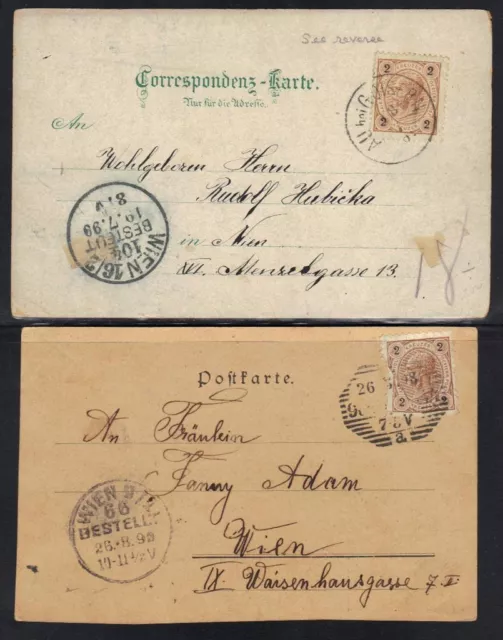 See reverse
Correspondenz-Karte.
Nur für die Adresse.
2 2
An
Wohlgeboren Herrn
Rudolf Hubička
in Wien
XVI. Menzelgasse 13.
WIEN 16/2
104
BESTELLT
19.7.99
8.V
Alt bei
18.-
Postkarte.
2 2
26
7-8V
a
An Fräulein
Fanny Adam
Wien
IX Waisenhausgasse 7.I.
WIEN 9
66
BESTELLT
26.8.98